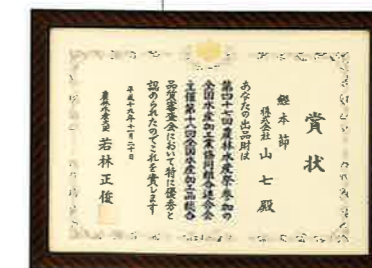 賞状
鰹本節
株式会社 山七殿
あなたの出品財は
第四十七回農林水産祭参加の
全国水産加工業協同組合連合会
主催第十八回全国水産加工品総合
品質審査会において特に優秀と
認められたのでこれを賞します
平成十九年十一月二十日
農林水産大臣 若林正俊